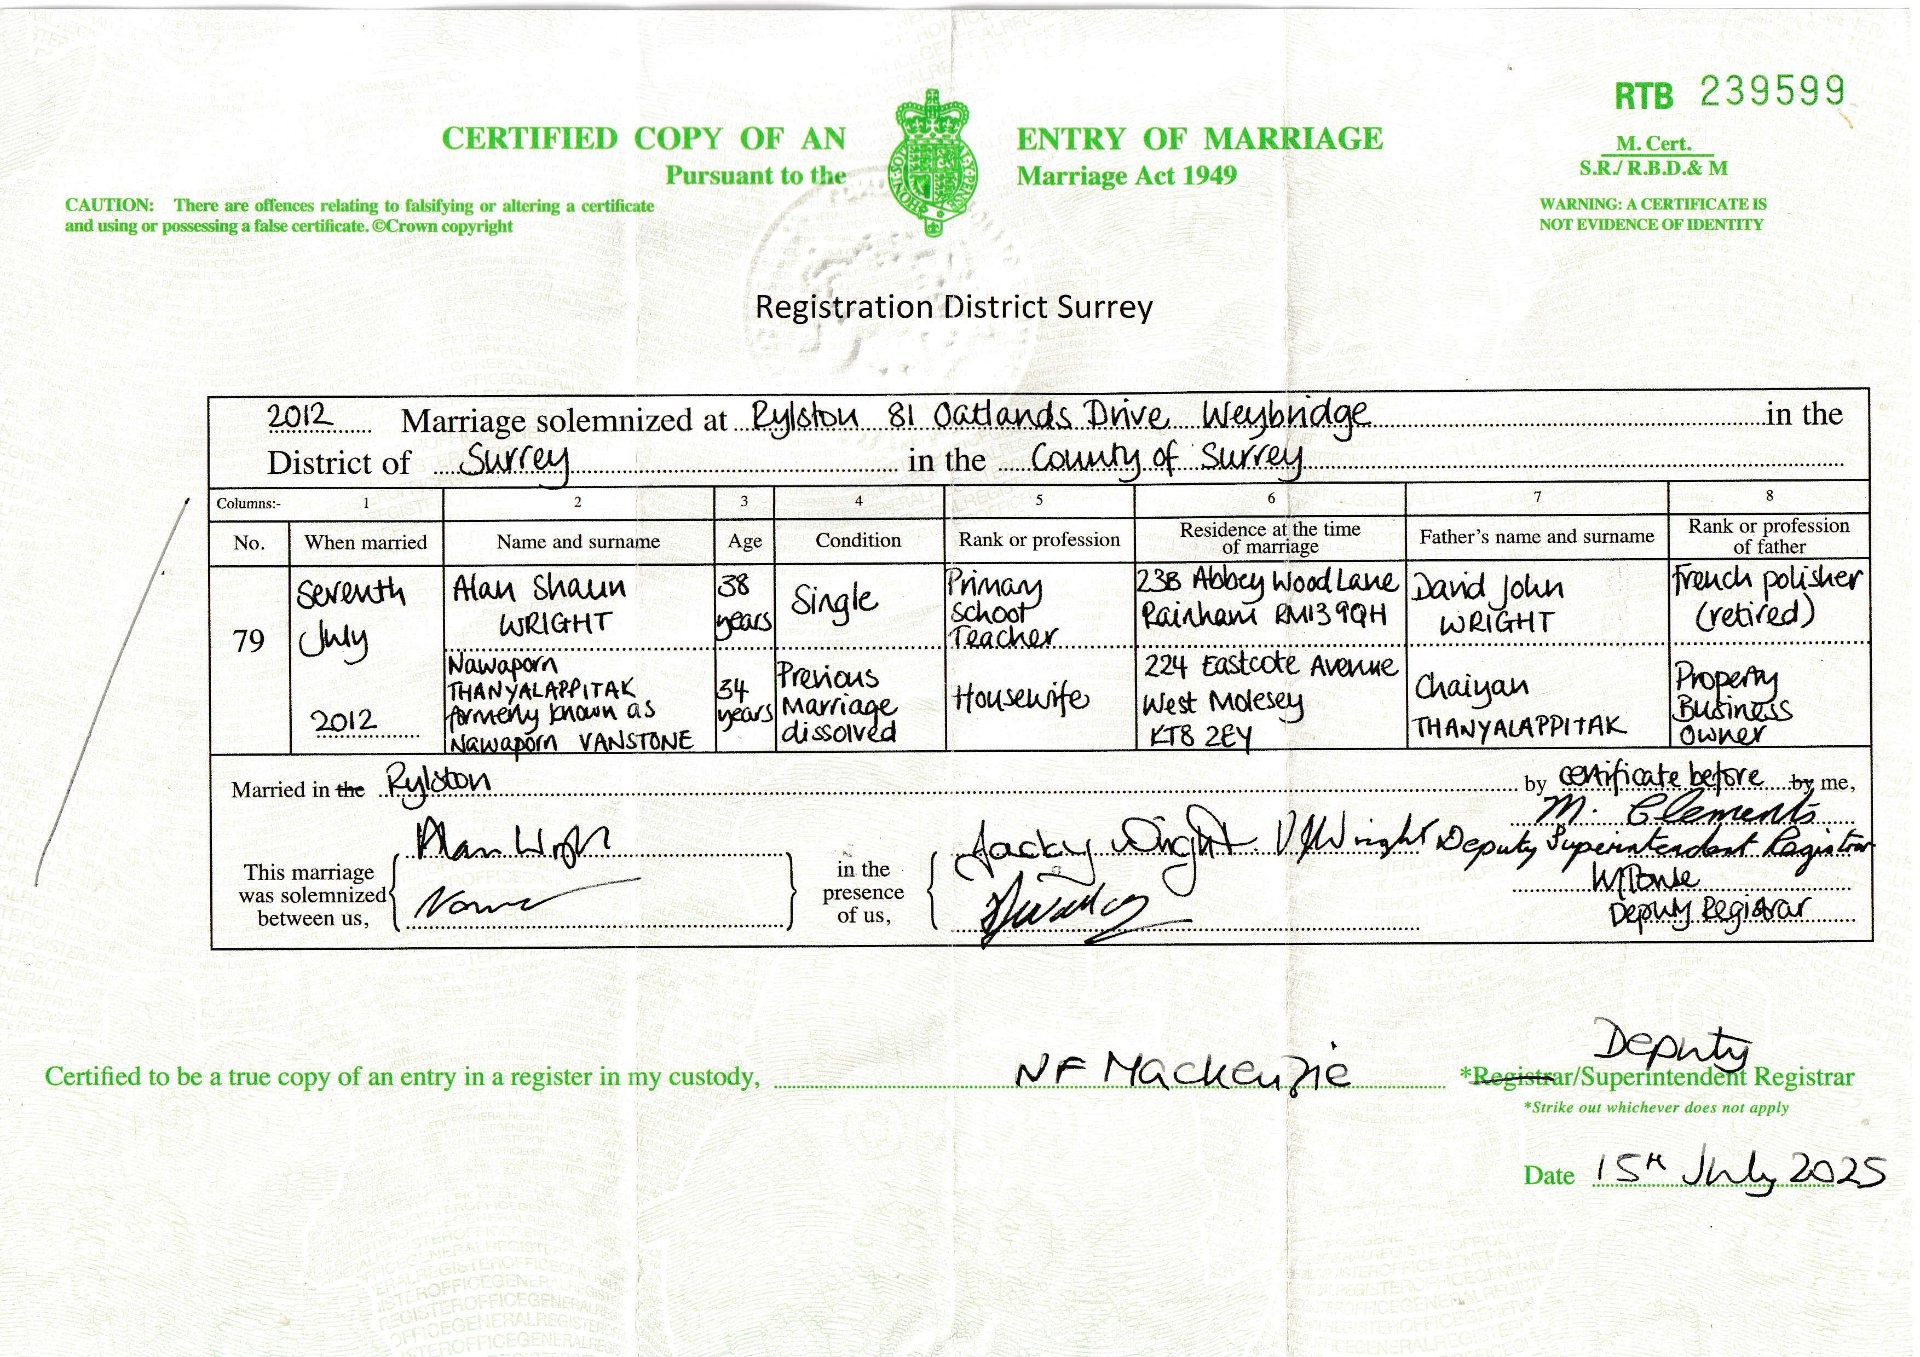 RTB 239599
CERTIFIED COPY OF AN ENTRY OF MARRIAGE
Pursuant to the Marriage Act 1949
M. Cert.
S.R./ R.B.D.& M
CAUTION: There are offences relating to falsifying or altering a certificate
and using or possessing a false certificate. ©Crown copyright
WARNING: A CERTIFICATE IS
NOT EVIDENCE OF IDENTITY
Registration District Surrey
2012 Marriage solemnized at Rylston 81 Oatlands Drive Weybridge in the
District of Surrey in the County of Surrey
Columns:- 1 2 3 4 5 6 7 8
No.
When married
Name and surname
Age
Condition
Rank or profession
Residence at the time
of marriage
Father's name and surname
Rank or profession
of father
79
Seventh
July
2012
Alan Shaun
WRIGHT
38
years
Single
Primary
School
Teacher
23B Abbey Wood Lane
Rainham RM13 9QH
David John
WRIGHT
French polisher
(retired)
Nawaporn
THANYALAPPITAK
formerly known as
Nawaporn VANSTONE
34
years
Previous
Marriage
dissolved
Housewife
224 Eastcote Avenue
West Molesey
KT8 2EY
Chaiyan
THANYALAPPITAK
Property
Business
Owner
Married in the Rylston by certificate before by me,
This marriage
was solemnized
between us,
Alan Wright
in the
presence
of us,
Jacky Wright
M. Clements
Deputy Superintendent Registrar
Deputy Registrar
Certified to be a true copy of an entry in a register in my custody, NF Mackenzie
Deputy
*Registrar/Superintendent Registrar
*Strike out whichever does not apply
Date 15th July 2025